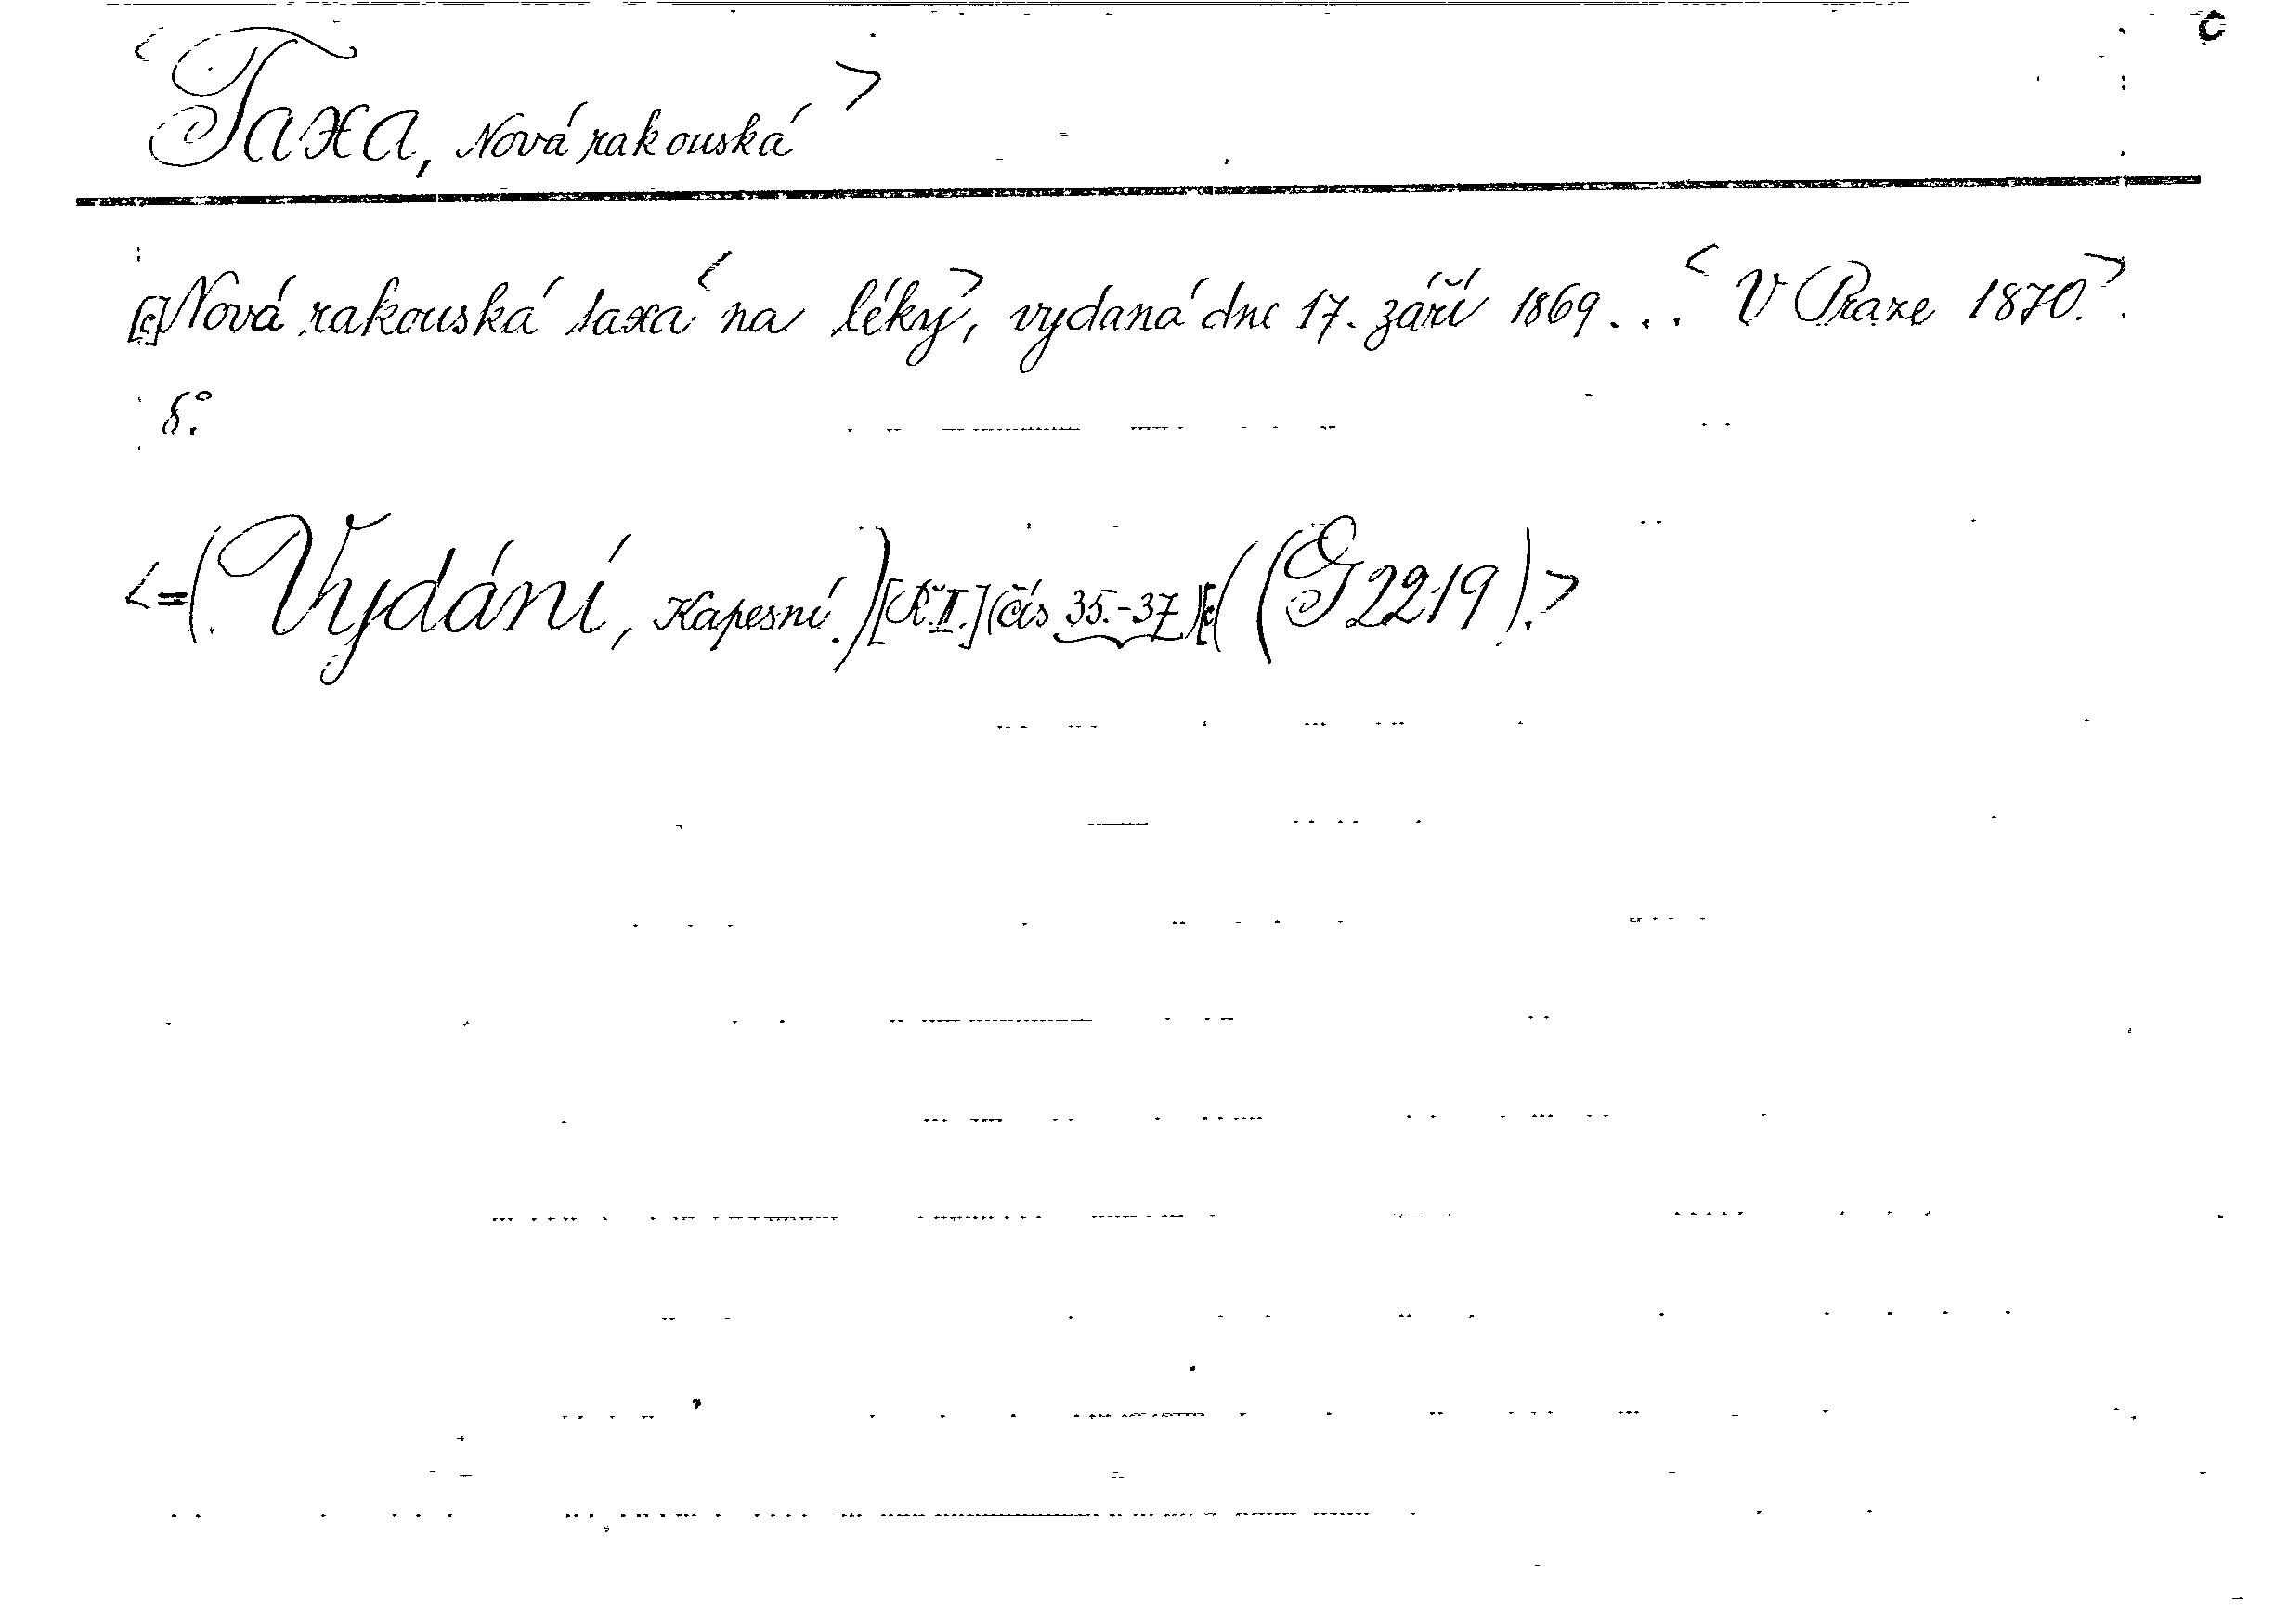 C
<Taxa, Nová rakouská>
[c]Nová rakouská taxa <na léky>, vydaná dne 17. září 1869... <V Praze 1870.>
8°.
<=(Vydání, Kapesní.)[Ř.II.](čís 35.-37)[c]((G2219).>